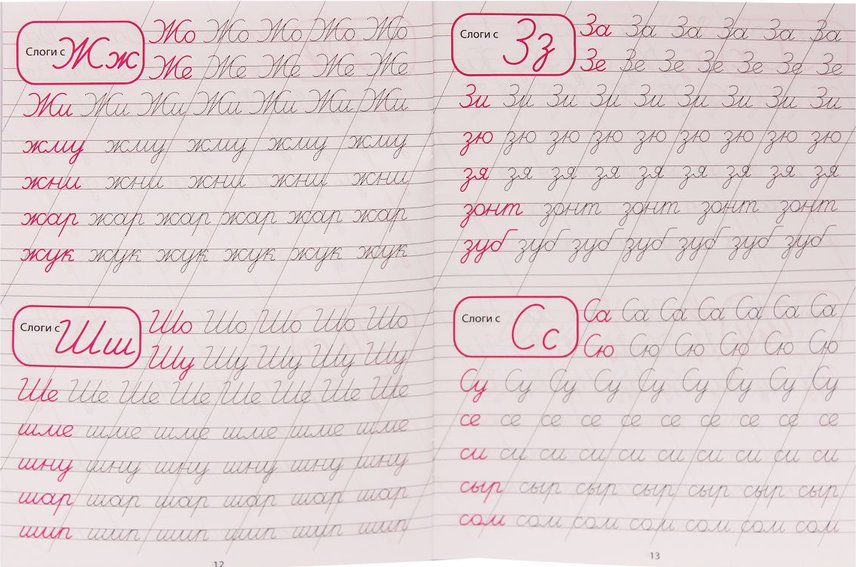 Слоги с Жж
Жо Жо Жо Жо Жо
Же Же Же Же Же
Жи Жи Жи Жи Жи Жи Жи
жму жму жму жму жму
жни жни жни жни жни
жар жар жар жар жар жар
жук жук жук жук жук жук
Слоги с Шш
Шо Шо Шо Шо Шо
Шу Шу Шу Шу Шу
Ше Ше Ше Ше Ше Ше Ше Ше
шме шме шме шме шме шме
шну шну шну шну шну шну
шар шар шар шар шар шар
шип шип шип шип шип шип
12
Слоги с Зз
За За За За За За
Зе Зе Зе Зе Зе Зе Зе
Зи Зи Зи Зи Зи Зи Зи Зи Зи
зю зю зю зю зю зю зю зю зю
зя зя зя зя зя зя зя зя зя
зонт зонт зонт зонт зонт
зуб зуб зуб зуб зуб зуб зуб
Слоги с Сс
Са Са Са Са Са Са Са
Сю Сю Сю Сю Сю Сю
Су Су Су Су Су Су Су Су Су
се се се се се се се се се се
си си си си си си си си си си
сыр сыр сыр сыр сыр сыр сыр
сом сом сом сом сом сом сом
13